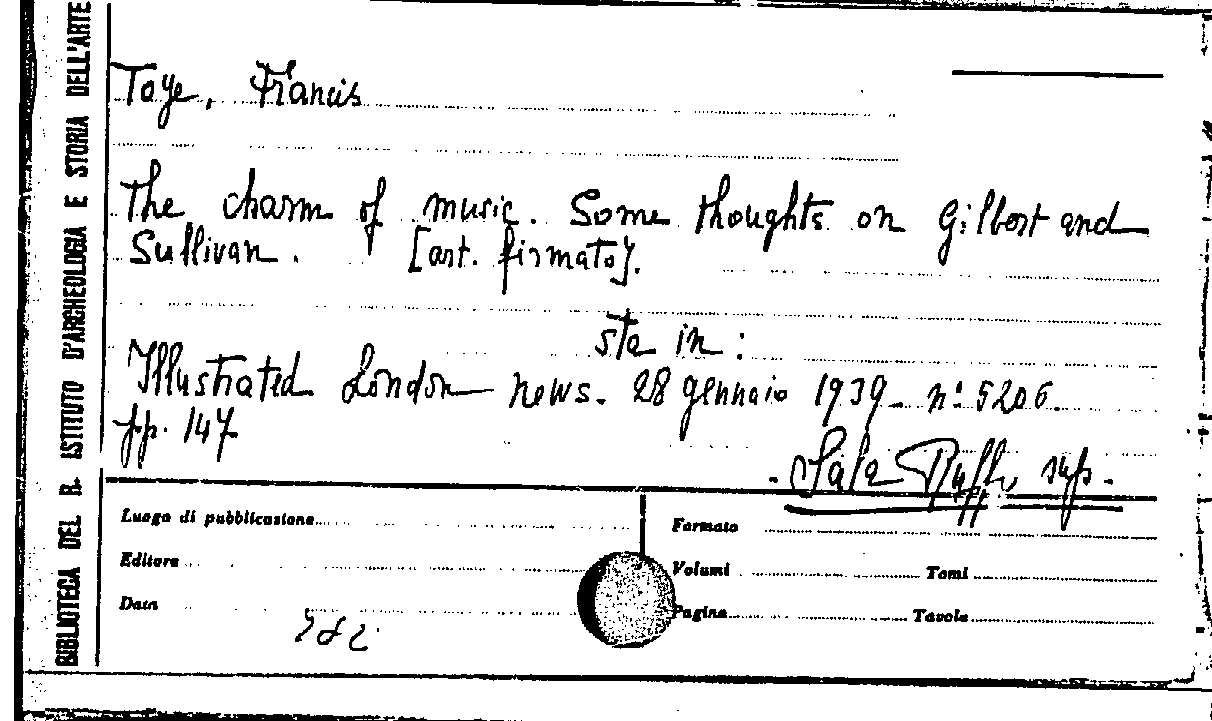 Toye, Francis
The charm of music. Some thoughts on Gilbert and
Sullivan. [art. firmato].
sta in:
Illustrated London news. 28 gennaio 1939. n° 5206.
pp. 147
Sala
Luogo di pubblicazione
Formato
Editore
Volumi
Tomi
Data
Pagine
Tavole
BIBLIOTECA DEL R. ISTITUTO D'ARCHEOLOGIA E STORIA DELL'ARTE